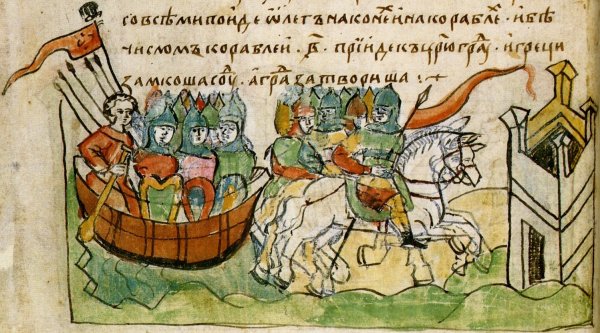 совсѣмипоиде ѡлегъ на конеи на кораблѣ . и бѣ
числомъ кораблеи . в҃ . прїиде къ ц҃рюгра . игреци
замкоша соу . а гра затвориша : ~